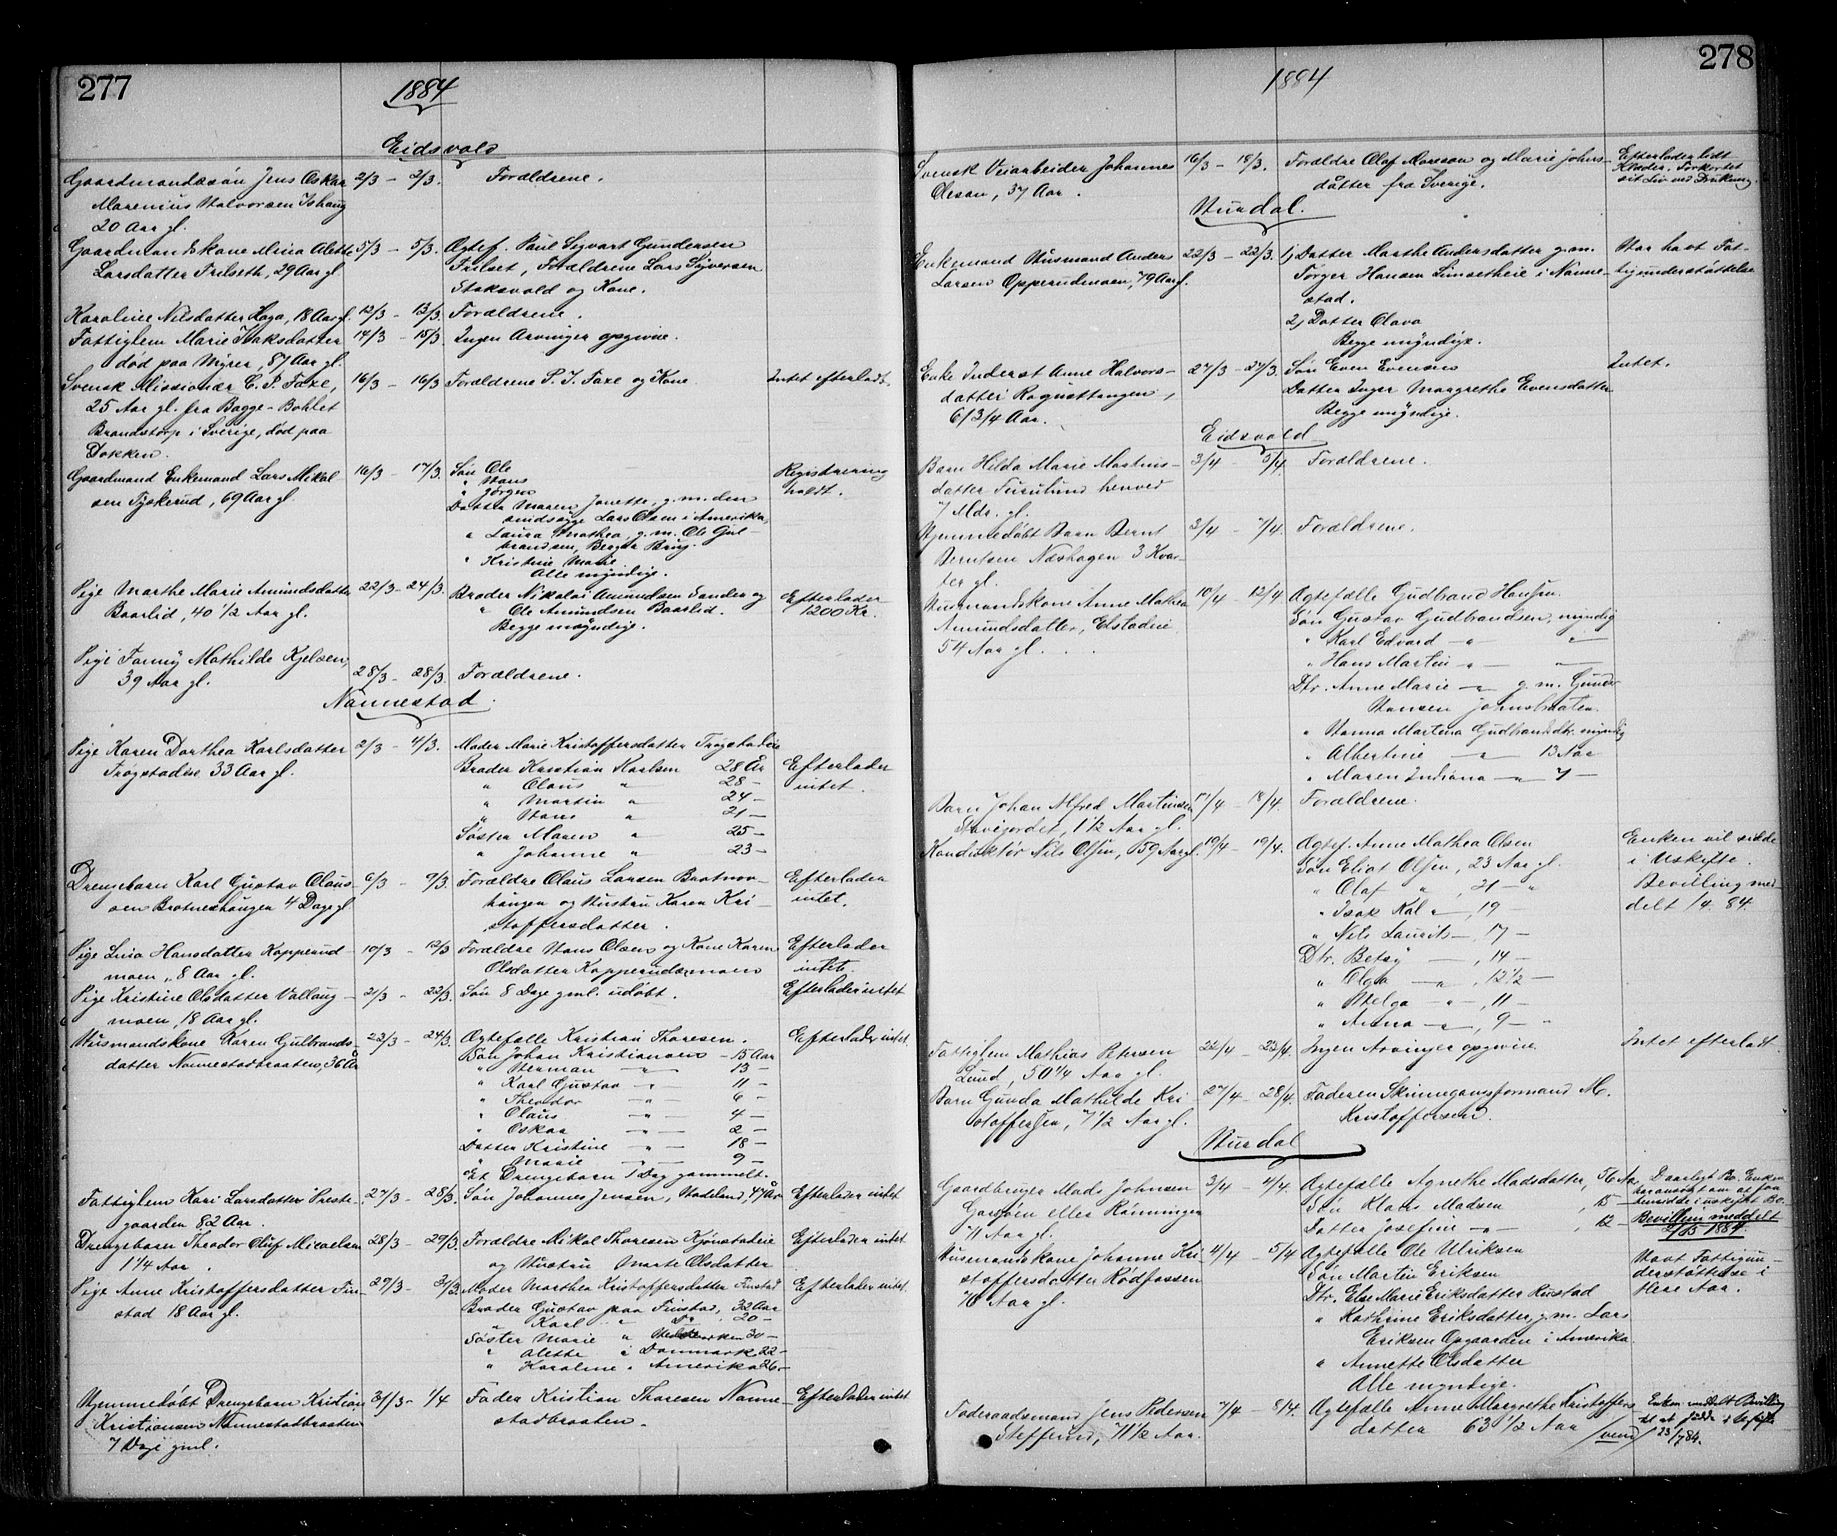 277
1884
Eidsvold
Gaardmandssøn Jens Oskar 2/3 – 2/3. Forældrene.
Marenius Halvorsen Ishaug
20 Aar gl.
Gaardmandskone Mina Alette 5/3 – 5/3. Ægtef. Paul Sigvart Gundersen
Larsdatter Frilseth, 29 Aar gl. Frilset, Forældrene Lars Sijversen
Staksvold og Kone.
Karoline Nilsdatter Haga, 18 Aar gl. 12/3 – 13/3. Forældrene.
Fattiglem Marie Isaksdatter 14/3 – 15/3. Ingen Arvinger opgivne.
død paa Myrer, 87 Aar gl.
Svensk Missionær C. P. Faxe, 16/3 – 16/3 Forældrene P. J. Faxe og Kone Intet efterladt.
25 Aar gl. fra Bagge-Bohlet
Brandstorp i Sverige, død paa
Dokken.
Gaardmand Enkemand Lars Mikal 16/3 – 17/3. Søn Ole Registrering
sen Tyskerud, 69 Aar gl. " Hans holdt.
" Jørgen
Datter Maren Janette, g. m. den
sindssyge Lars Olsen i Amerika,
" Laura Mathea, g. m. Ole Gul-
brandsen, Berger Brug.
" Kristine Marie
Alle myndige.
Pige Marthe Marie Amundsdatter 22/3 – 24/3. Broder Nikolai Amundsen Sander og Efterlader
Baarlid, 40 1/2 Aar gl. " Ole Amundsen Baarlid. 1200 Kr.
Begge myndige.
Pige Fanny Mathilde Kjelsen,
39 Aar gl. 28/3 – 28/3. Forældrene.
Nannestad
Pige Karen Dorthea Karlsdatter 2/3 – 4/3. Moder Marie Kristoffersdatter Trøgstadeie
Trøgstadeie 33 Aar gl. Broder Kristian Karlsen 28 År Efterlader
" Olaus " 28 – intet.
" Martin " 24 –
" Hans " 21 –
Søster Maren " 25 –
" Johanne " 23 –
Drengebarn Karl Gustav Olaus- 6/3 – 9/3. Forældre Olaus Larsen Brotnov- Efterlader
sen Brotneshaugen 4 Dage gl haugen og Hustru Karen Kri- intet.
stoffersdatter.
Pige Lina Hansdatter Kopperud- 10/3 – 12/3 Forældre Hans Olsen og Kone Karen Efterlader
moen, 8 Aar gl. Olsdatter Kopperudsmoen intet.
Pige Kristine Olsdatter Vallaug- 21/3 – 22/3. Søn 8 Dage gml. udøbt. Efterlader intet
moen, 18 Aar gl.
Husmandskone Karen Gulbrands- 23/3 – 24/3. Ægtefælle Kristian Thoresen. Efterlader intet
datter Nannestadbraaten, 36 År Søn Johan Kristiansen – 15 Aar
" Herman – " – 13 –
" Karl Gustav – " – 11 –
" Theodor – " – 6 –
" Olaus – " – 4 –
" Oskar – " – 2 –
Datter Kristine – " – 18 –
" Marie – " – 9 –
Et Drengebarn 1 Dag gammelt.
Fattiglem Kari Larsdatter Preste- 27/3 – 28/3. Søn Johannes Jensen, Hadeland, 47 År Efterlader intet
gaarden 82 Aar.
Drengebarn Theodor Oluf Micaelsen 28/3 – 29/3. Forældre Mikal Thoresen Kjonstadeie Efterlader intet
1 1/4 Aar. og Hustru Marte Olsdatter
Pige Anne Kristoffersdatter Fin- 29/3 – 31/3. Moder Marthea Kristoffersdatter Finstad Efterlader intet.
stad 18 Aar gl. Broder Gustav paa Finstad, 32 Aar
" Karl " Do 20 –
Søster Marie " 30 –
" Alette i Danmark 22 –
" Karoline " Amerika 26 –
Hjemmedøbt Drengebarn Kristian 31/3 – 1/4 Fader Kristian Thoresen Nanne- Efterlader intet
Kristiansen Nannestadbraaten stadbraaten.
7 Dage gml.
278
1884
Svensk Veiarbeider Johannes 16/3 – 18/3. Forældre Olof Monsson og Marie Johns- Efterlader lidt
Olesen, 37 Aar. datter fra Sverige. Klæder. Forkortet
sit Liv ved Drukning.
Hurdal.
Enkemand Husmand Anders 22/3 – 22/3. 1) Datter Marthe Andersdatter g. m. Har havt Fat-
Larsen Opperudmoen, 79 Aar gl. Torger Hansen Limsetheie i Nanne- tigunderstøttelse
stad.
2) Datter Olava
Begge myndige.
Enke Inderst Anne Halvors- 27/3 – 27/3. Søn Even Evensen Intet.
datter Rognstangen, Datter Inger Margrethe Evensdatter
61 3/4 Aar. Begge myndige.
Eidsvold
Barn Hilda Marie Martins- 3/4 – 5/4. Forældrene.
datter Furulund henved
7 Mdr. gl.
Hjemmedøbt Barn Bernt 3/4 – 7/4. Forældrene.
Berntsen Næshagen 3 Kvar-
ter gl.
Husmandskone Anne Mathea 10/4 – 12/4 Ægtefælle Gudbrand Hansen.
Amundsdatter, Elstadeie Søn Gustav Gudbrandsen, myndig
54 Aar gl. " Karl Edvard – " – "
" Hans Martin – " – "
Dtr. Anne Marie – " – g. m. Gunder
Hansen Johnsbraaten.
" Hanna Martina Gudbrandsdtr. myndig
" Albertine " 13 Aar
" Maren Indiana – " – 7 –
Barn Johan Alfred Martinsen 17/4 – 18/4. Forældrene.
Stavijordet, 1 1/2 Aar gl.
Konduktør Nils Olsen, 59 Aar gl. 19/4 – 19/4. Ægtef. Anne Mathea Olsen Enken vil sidde
Søn Eliot Olsen, 23 Aar gl. i Uskifte.
" Olaf " , 21 – " Bevilling med-
" Isak Kal " , 19 – delt 1/4. 84.
" Nils Laurits – , 17 –
Dtr. Betsy – , 14 –
" Olga – " – , 12 1/2 –
" Helga – " – , 11 –
" Anna – " – , 9 – "
Fattiglem Mathias Petersen 22/4 – 22/4. Ingen Arvinger opgivne. Intet efterladt.
Lund, 50 1/4 Aar gl.
Barn Gunda Mathilde Kri- 27/4 – 28/4. Faderen Skinnegangsformand M.
stoffersen, 7 1/2 Aar gl. Kristoffersen.
Hurdal
Gaardbruger Mads Johnsen 3/4 – 4/4. Ægtefælle Agnethe Madsdatter, 56 Aar Daarligt Bo. Enken
Garsjøen eller Rønningen Søn Klaus Madsen , 15 –
71 Aar gl. Datter Josefine – " – , 12 – Bevilling meddelt
1884
Husmandskone Johanne Kri- 4/4 – 5/4 Ægtefælle Ole Ulriksen Havt Fattigun-
stoffersdatter Rødfossen Søn Martin Eriksen derstøttelse i
76 Aar gl. Dtr. Else Marie Eriksdatter Rustad flere Aar.
" Kathrine Eriksdatter, g. m. Lars
Eriksen Opgaarden i Amerika
" Annette Olsdatter
Alle myndige.
Foderaadsmand Jens Pedersen 7/4 – 8/4. Ægtefælle Anne Margrethe Kristoffers- Enken meddelt Bevilling
Steffenrud, 71 1/2 Aar. datter 63 1/2 Aar /vend/ til at sidde i Uskifte
23/7 84.